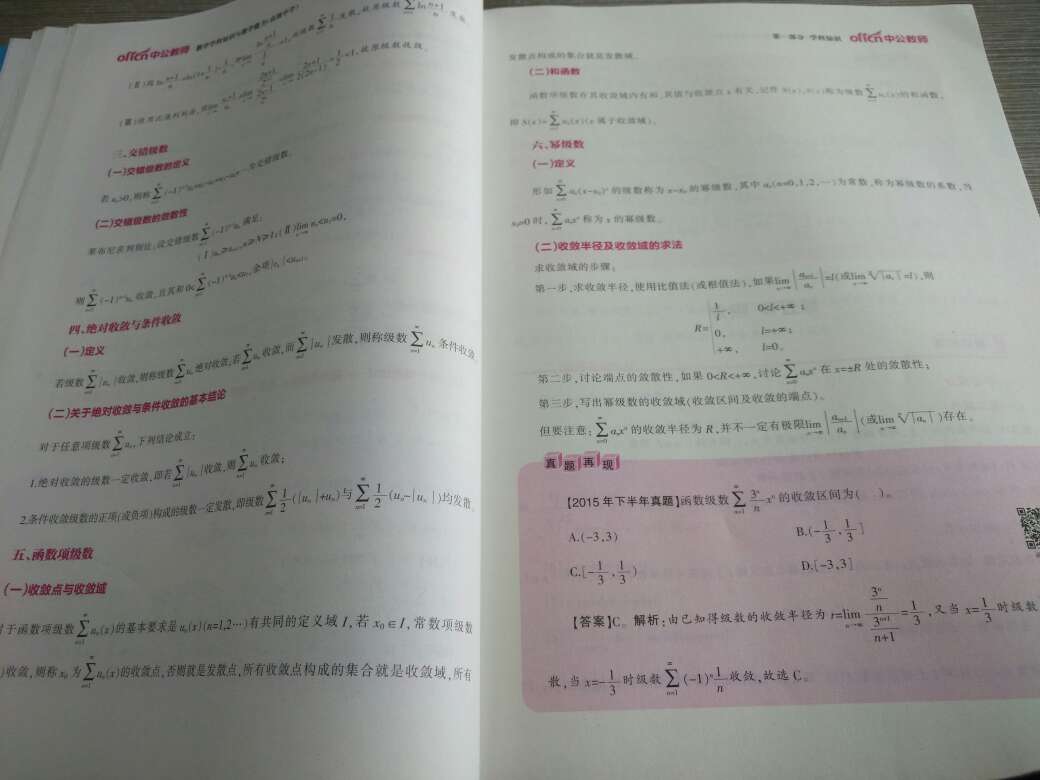 offcn中公教师 数学学科知识与教学能力(高级中学)
三、交错级数
(一)交错级数的定义
若uₙ>0,则称
为交错级数。
(二)交错级数的敛散性
莱布尼茨判别法:设交错级数
满足:
收敛,且其和
余项
四、绝对收敛与条件收敛
(一)定义
若级数∑|uₙ|收敛,则称级数∑uₙ绝对收敛,若∑uₙ收敛,而∑|uₙ|发散,则称级数∑uₙ条件收敛
(二)关于绝对收敛与条件收敛的基本结论
对于任意项级数∑uₙ,下列结论成立:
1.绝对收敛的级数一定收敛,即若∑|uₙ|收敛,则∑uₙ收敛;
2.条件收敛级数的正项(或负项)构成的级数一定发散,即级数∑1/2(|uₙ|+uₙ)与∑1/2(uₙ-|uₙ|)均发散
五、函数项级数
(一)收敛点与收敛域
于函数项级数∑uₙ(x)的基本要求是uₙ(x)(n=1,2…)有共同的定义域I,若x₀∈I,常数项级数
)收敛,则称x₀为∑uₙ(x)的收敛点,否则就是发散点,所有收敛点构成的集合就是收敛域,所有
第一部分 学科知识 offcn中公教师
发散点构成的集合就是发散域。
(二)和函数
函数项级数在其收敛域内有和,其值与收敛点x有关,记作S(x),S(x)称为级数∑uₙ(x)的和函数,
即S(x)=∑uₙ(x)(x属于收敛域)。
六、幂级数
(一)定义
形如∑aₙ(x-x₀)ⁿ的级数称为x-x₀的幂级数,其中aₙ(n=0,1,2,…)为常数,称为幂级数的系数,当
x₀=0时,∑aₙxⁿ称为x的幂级数。
(二)收敛半径及收敛域的求法
求收敛域的步骤:
第一步,求收敛半径,使用比值法(或根值法),如果lim|aₙ₊₁/aₙ|=l(或lim ⁿ√|aₙ|=l),则
1/l, 0<l<+∞;
R= 0, l=+∞;
+∞, l=0。
第二步,讨论端点的敛散性,如果0<R<+∞,讨论∑aₙxⁿ在x=±R处的敛散性;
第三步,写出幂级数的收敛域(收敛区间及收敛的端点)。
但要注意:∑aₙxⁿ的收敛半径为R,并不一定有极限lim|aₙ₊₁/aₙ|(或lim ⁿ√|aₙ|)存在。
真题再现
【2015年下半年真题】函数级数∑3ⁿ/n xⁿ的收敛区间为( )。
A.(-3,3) B.(-1/3,1/3]
C.[-1/3,1/3) D.[-3,3]
【答案】C。解析:由已知得级数的收敛半径为r=lim (3ⁿ/n)/(3ⁿ⁺¹/(n+1))=1/3,又当x=1/3时级数
散,当x=-1/3时级数∑(-1)ⁿ1/n收敛,故选C。